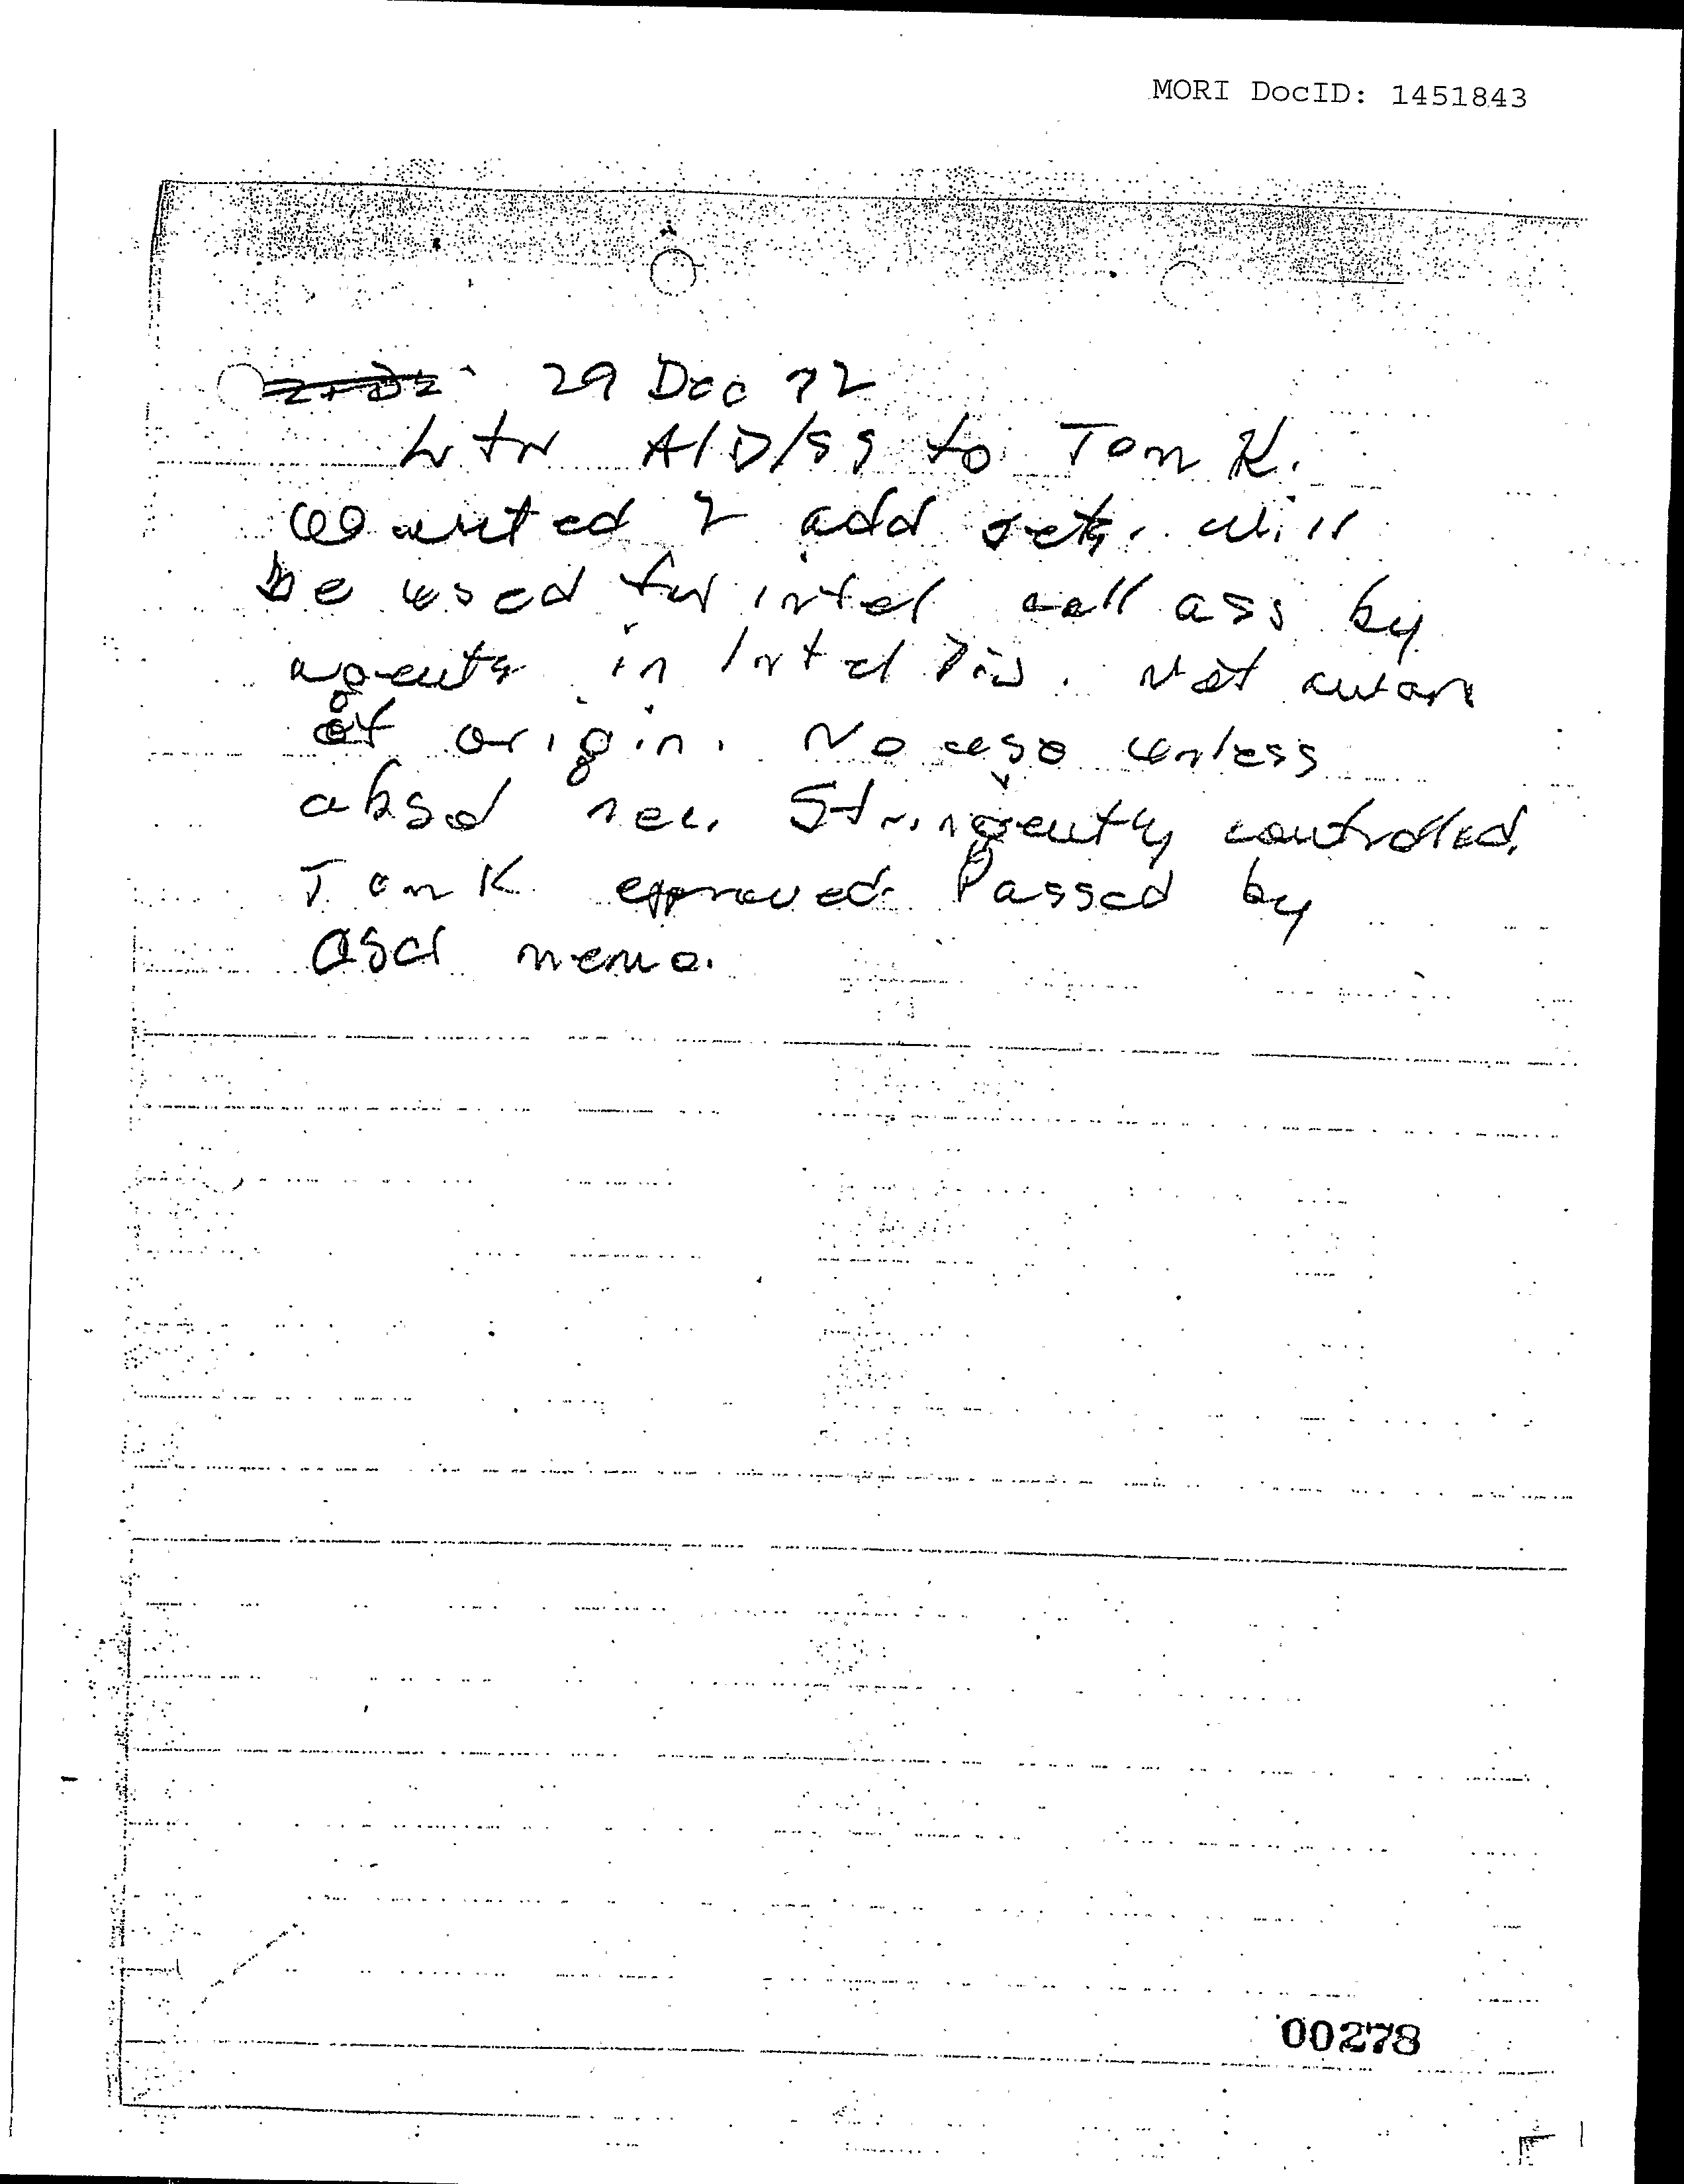 MORI DocID: 1451843
29 Dec 72
Ltr A/D/SS to Tom K.
wanted 2 add sets. Will
be used for intel coll ass by
agents in Intel Div. Not aware
of origin. No use unless
absol nec. Stringently controlled.
Tom K approved. Passed by
memo.
00278